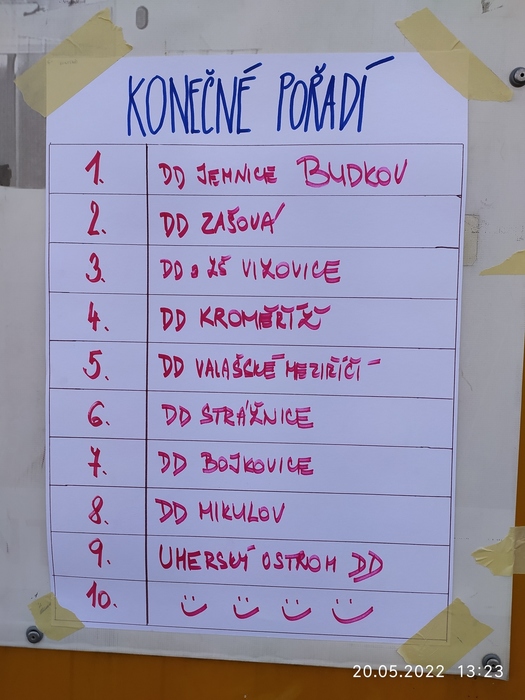 KONEČNÉ POŘADÍ
1. DD JEMNICE BUDKOV
2. DD ZAŠOVÁ
3. DD a ZŠ VIZOVICE
4. DD KROMĚŘÍŽ
5. DD VALAŠSKÉ MEZIŘÍČÍ
6. DD STRÁŽNICE
7. DD BOJKOVICE
8. DD MIKULOV
9. UHERSKÝ OSTROH DD
10.
20.05.2022 13:23